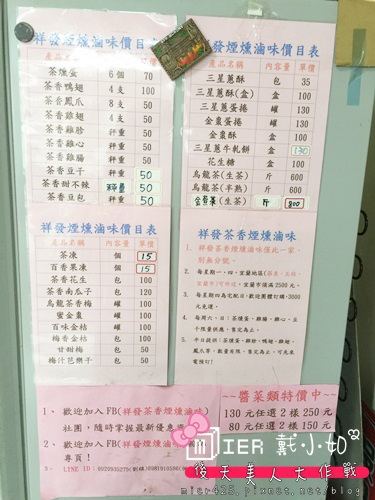 祥發煙燻滷味價目表
產品名稱 內容量 單價
茶燻蛋 6個 70
茶香鴨翅 4支 100
茶香鳳爪 8支 100
茶香雞翅 4支 50
茶香雞胗 秤重 50
茶香雞心 秤重 50
茶香雞腸 秤重 50
茶香豆干 秤重 50
茶香甜不辣 秤重 50
茶香豆包 秤重 50
祥發煙燻滷味價目表
產品名稱 內容量 單價
三星蔥酥 包 35
三星蔥酥(盒) 盒 100
三星蔥蛋捲 罐 100
金棗蛋捲 罐 100
金棗酥 盒 100
三星蔥牛軋餅 盒 130
花生糖 盒 100
烏龍茶(生茶) 斤 600
烏龍茶(半熟) 斤 600
(生茶) 斤 800
祥發煙燻滷味價目表
產品名稱 內容量 單價
茶凍 個 15
百香果凍 個 15
茶香花生 包 100
茶香南瓜子 包 120
烏龍茶香梅 罐 100
蜜金棗 罐 100
百味金桔 罐 100
梅香金桔 包 100
甘甜梅 包 50
梅汁芭樂干 包 50
祥發茶香煙燻滷味
1. 祥發茶香煙燻滷味僅此一家,
別無分號。
2. 每星期一、四,宜蘭地區
可外送,宜蘭市區滿2500元。
3. 每星期四為宅配日,歡迎團體訂購3000
元免運。
4. 每周六、日:茶燻蛋、雞腸、雞心、豆
干限量供應,售完為止。
5. 平日提供:茶燻蛋、雞胗、鴨翅、雞翅、
鳳爪等,數量有限,售完為止,可先來
電預訂!
1、 歡迎加入FB(祥發茶香煙燻滷味)
社團,隨時掌握最新優惠
2、 歡迎加入FB(祥發煙燻滷味
專頁!
3、 LINE ID:
~醬菜類特價中~
130元任選2樣250元
80元任選2樣150元
MIER 戴小如
後天美人大作戰
mier425.pixnet.net/blog